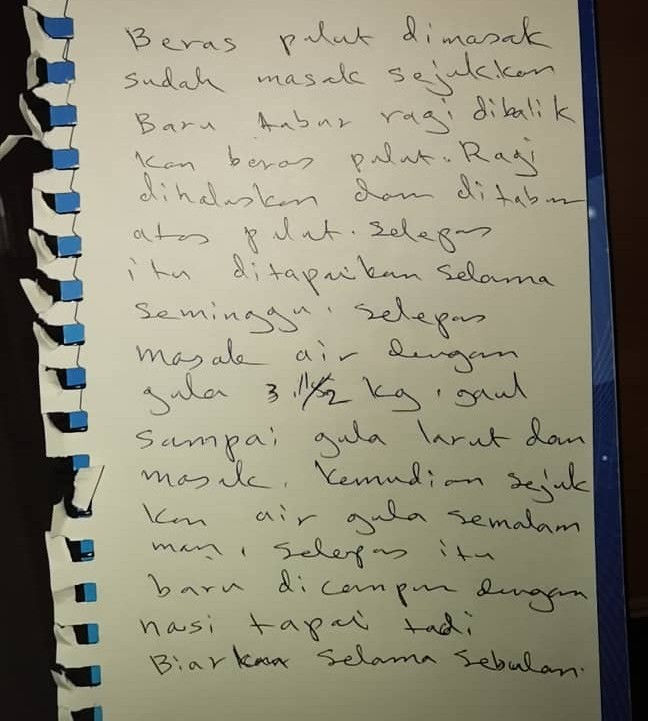 Beras pulut dimasak
sudah masak sejukkan
Baru tabur ragi dibalik
kan beras pulut. Ragi
dihaluskan dan ditabur
atas pulut. Selepas
itu ditapaikan selama
seminggu. Selepas
masak air dengan
gula 3 kg. gaul
sampai gula larut dan
masak. Kemudian sejuk
kan air gula semalam
man. Selepas itu
baru dicampur dengan
nasi tapai tadi
Biarkan selama sebulan.